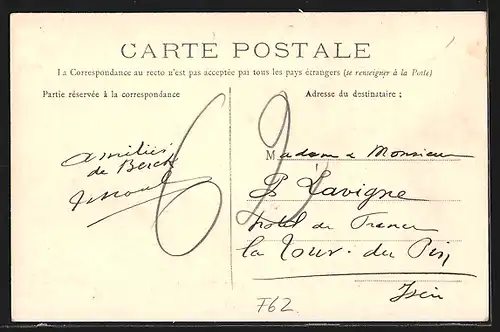 CARTE POSTALE
La Correspondance au recto n'est pas acceptée par tous les pays étrangers (se renseigner à la Poste)
Partie réservée à la correspondance
Adresse du destinataire ;
amitiés
de Berck
Madame & Monsieur
Lavigne
hotel de France
la Tour-du Pin
Isère
F62